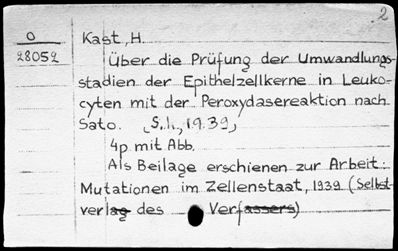 2
O Kast, H.
28052 Über die Prüfung der Umwandlungs-
stadien der Epithelzellkerne in Leuko-
cyten mit der Peroxydasereaktion nach
Sato. [S.l., 19.39,]
4p mit Abb.
Als Beilage erschienen zur Arbeit:
Mutationen im Zellenstaat, 1939 (Selbst-
verlag des Verfassers)